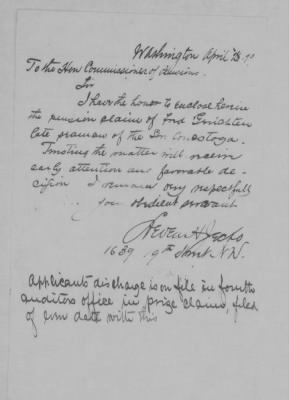 Washington April 28 90
To the Hon Commissioner of Pensions.
Sir
I have the honor to enclose herein
the pension claim of Fred
late fireman of the Str Conestoga.
Trusting the matter will receive
early attention and favorable de-
cision I remain very respectfull
your obedient servant
1639 9th Street N.W.
Applicants discharge is on file in fourth
auditors office in prize claim, filed
of even date with this